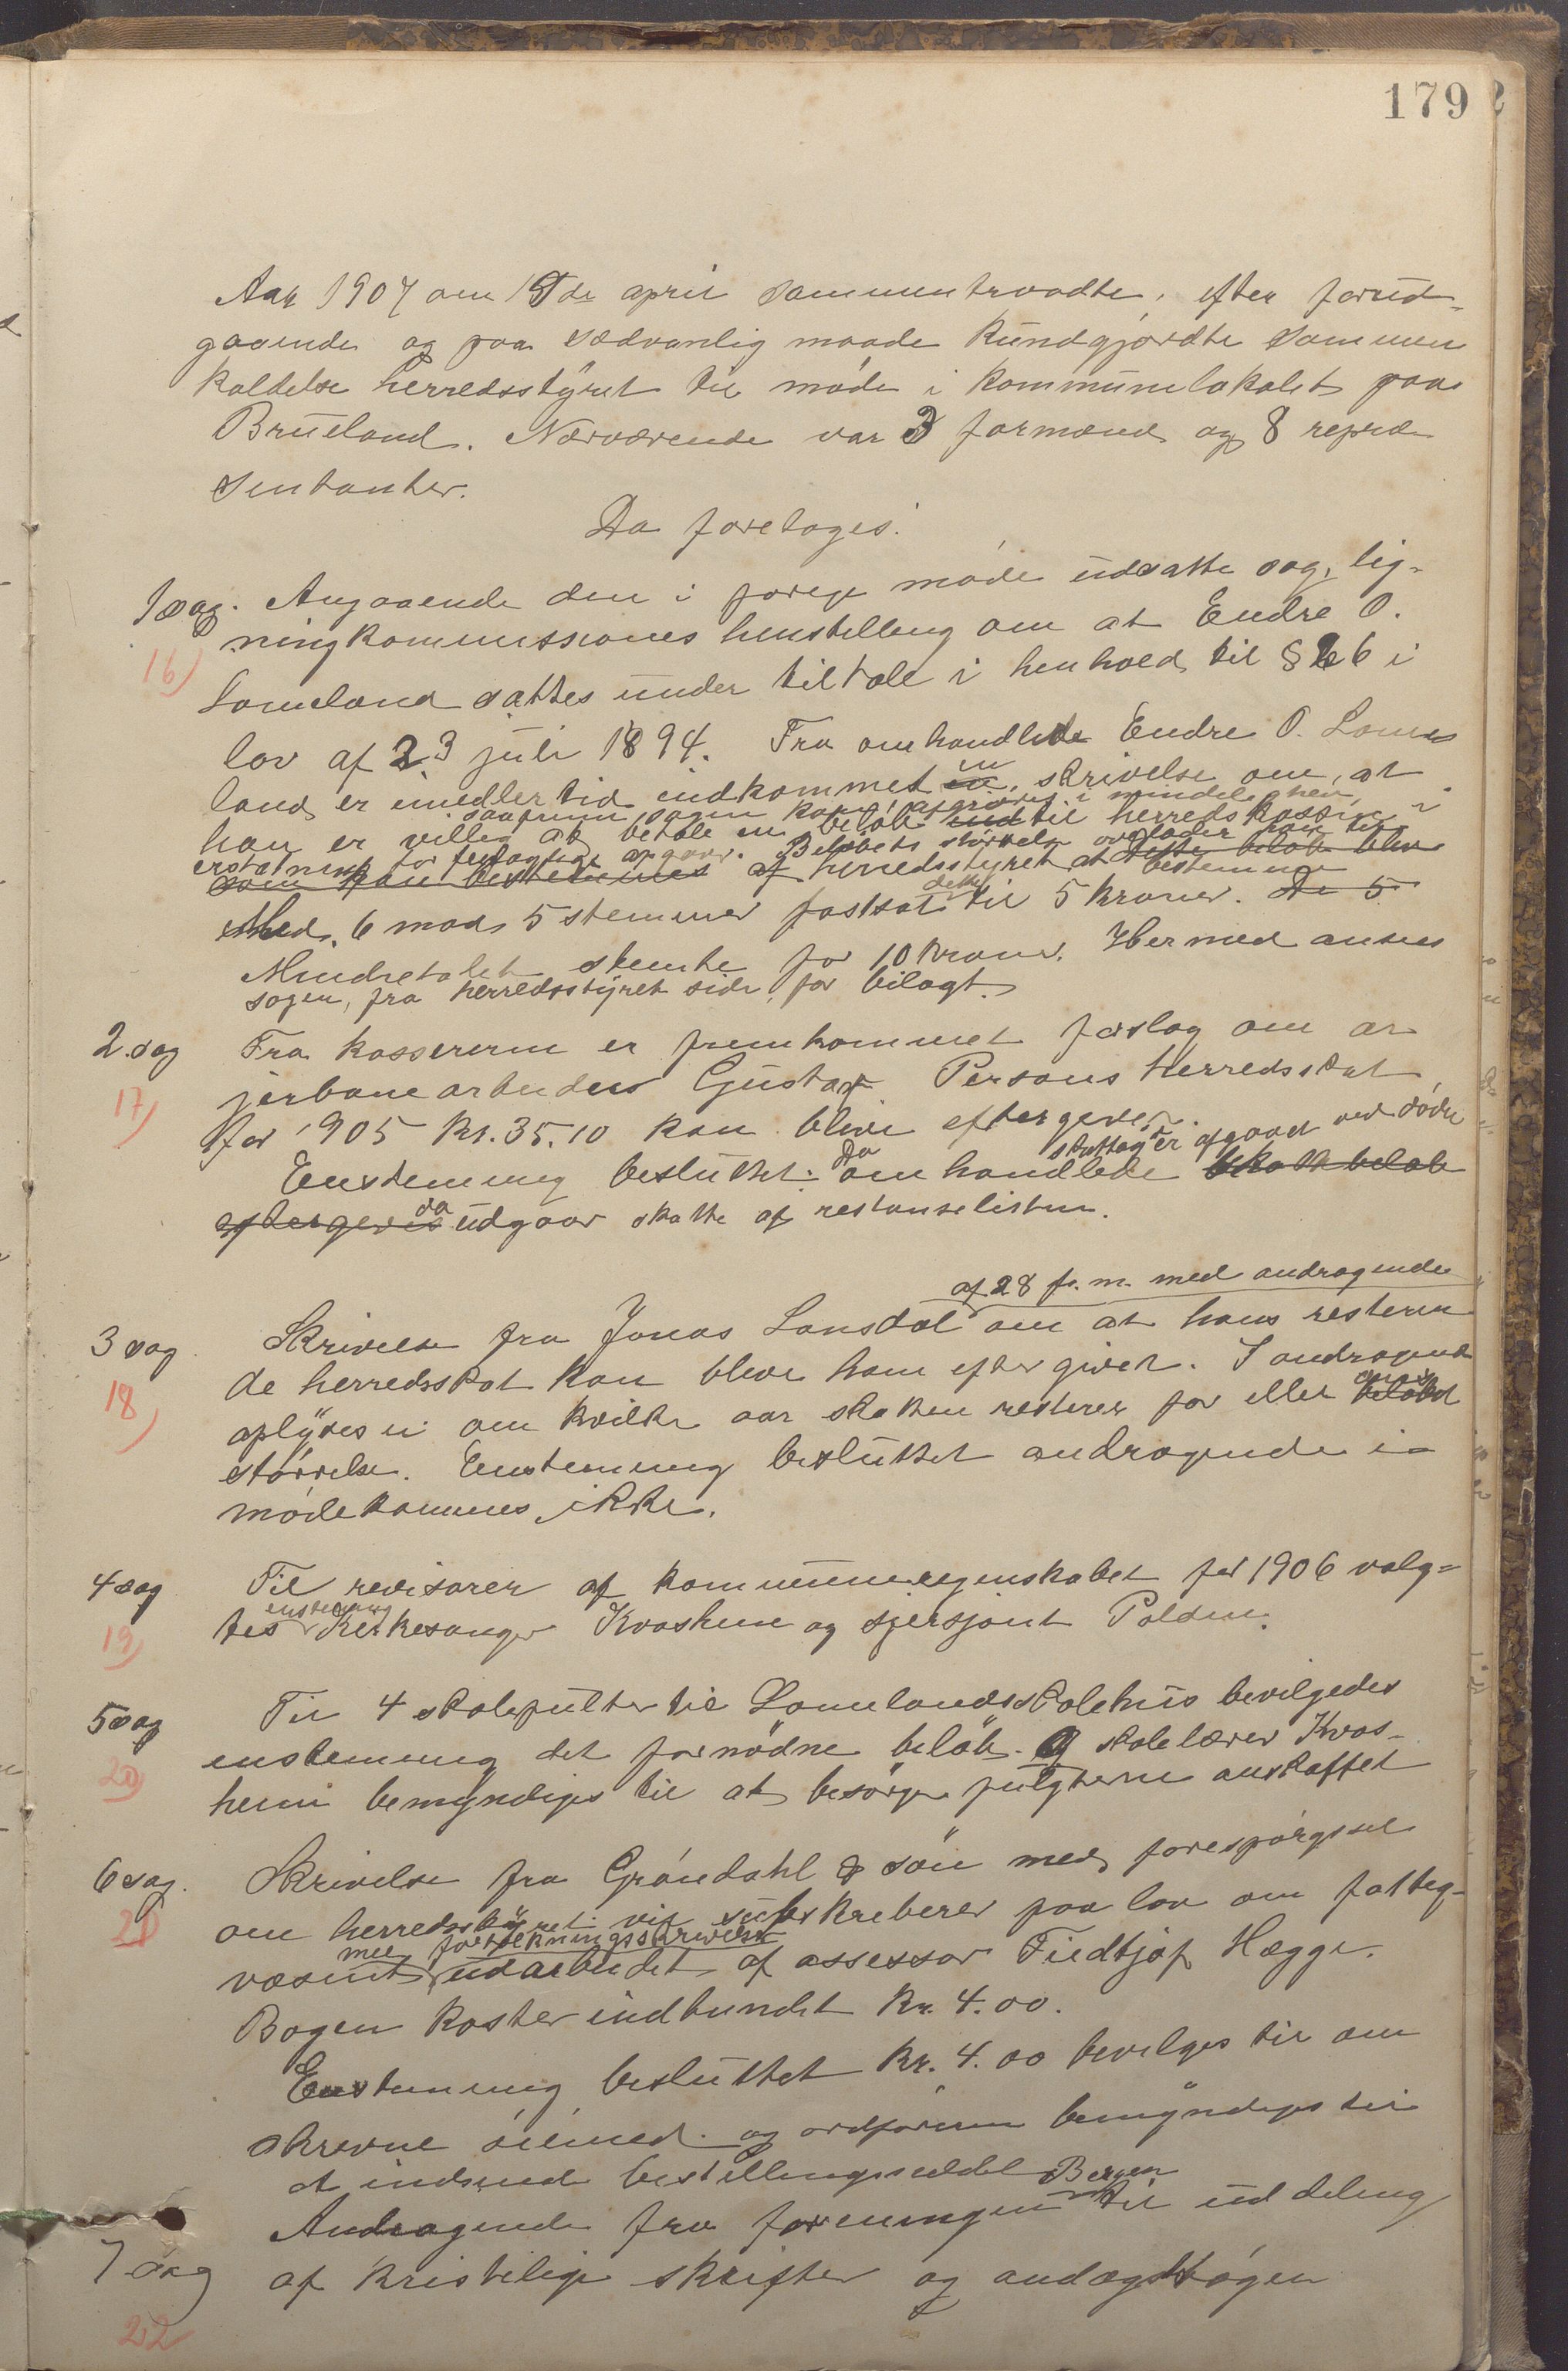 179
Aar 1907 den 15de april sammentraadte, efter forud-
gaaende og paa sædvanlig maade kundgjordte sammen
kaldelse herredsstyret til møde i kommunelokalet paa
Brueland. Nærværende var 3 formænd og 8 repræ
sentanter.
Da foretoges:
1 sag. Angaaende den i forige møde udsatte sag, lig-
16) ningkommissiones henstilling om at Endre O.
Lomeland sættes under tiltale i henhold til § 26 i
lov af 23 juli 1894. Fra omhandlede Endre O. Lome
land er imedlertid indkommet en skrivelse om, at
saafremt sagen kan afgjøres i mindelighed
han er villig at betale en beløb til herredskassen i
erstatning for feilagtige opgaver. Beløbets størrelse overlader han til
som kan bestemmes af herredsstyret at bestemme
dette beløb blev
Med 6 mod 5 stemmer fastsat dette til 5 kroner. De 5
Mindretalet stemte for 10 kroner. Hermed ansees
sagen, fra herredsstyret side, for bilagt.
2 sag Fra kassereren er fremkommet forslag om at
17) jernbanearbeider Gustaf Persons herredsskat
for 1905 kr. 35.10 kan blive eftergivet.
Enstemmig besluttet: Da omhandlede skattey er afgaaet ved døde
skattebeløb
eftergives da udgaar skatte af restanselisten.
af 28 f. m. med andragende
3 sag Skrivelse fra Jonas Lonsdal om at hans resteren
18) de herredsskat kan blive ham eftergivet. I andragende
oplyses ei om hvilke aar skatten resterer for eller
beløbet
størrelse. Enstemmig besluttet andragende i-
mødekommes ikke.
4 sag Til revisorer af kommuneregnskabet for 1906 valg-
19) tes enstemmig Kirkesanger Kvashem og sjersjant Polden.
5 sag Til 4 skolepulter til Lomelands skolehus bevilgedes
20) enstemmig det fornødne beløb. Og skolelærer Kvas-
heim bemyndiges til at besørge pulterne anskaffet
6 sag. Skrivelse fra Grøndahl & søn med forespørgsel
21) om herredsstyret vil subskriberer paa lov om fatteg-
væsenet med udarbeidet af assessor Fredtjof Hægge.
Bogen koster indbundet kr. 4.00.
Enstemmig besluttet kr. 4.00 bevilges til om
skrevne øiemed. og ordføreren bemyndiges til
at indsende bestillingsseddel
7 sag Andragende fra foreningen Bergen til uddeling
22 af kristelige skrifter og andagtsbøger